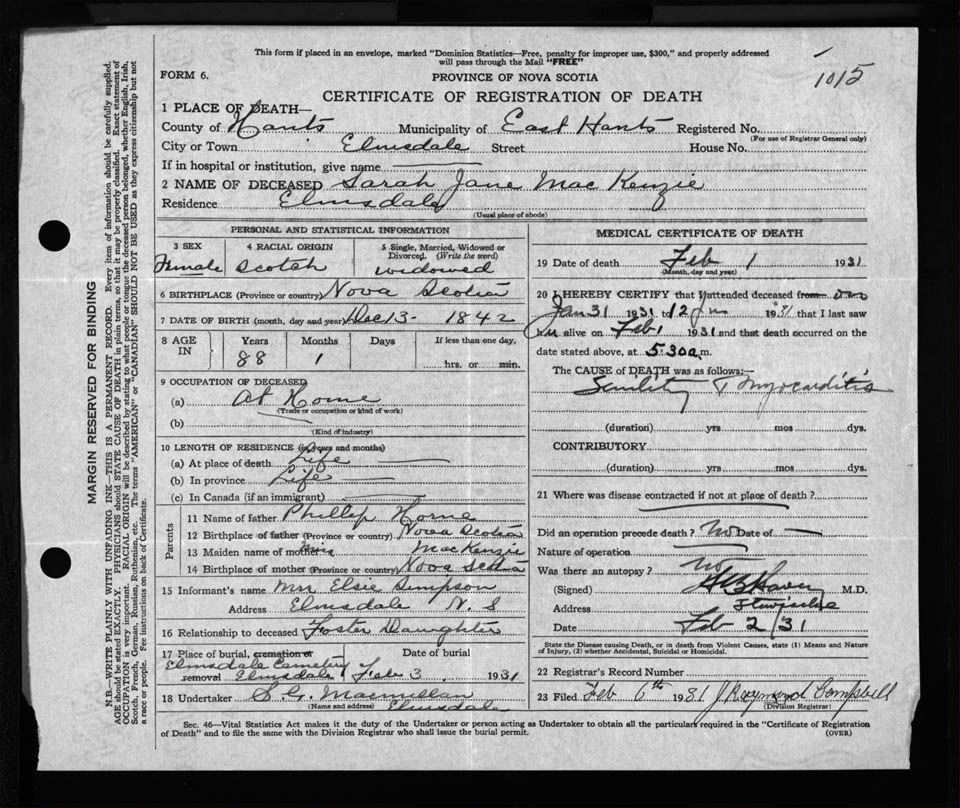 This form if placed in an envelope, marked "Dominion Statistics—Free, penalty for improper use, $300," and properly addressed
will pass through the Mail "FREE"
FORM 6.
PROVINCE OF NOVA SCOTIA
1015
CERTIFICATE OF REGISTRATION OF DEATH
1 PLACE OF DEATH—
County of Hants Municipality of East Hants Registered No.
(For use of Registrar General only)
City or Town Elmsdale Street House No.
If in hospital or institution, give name
2 NAME OF DECEASED Sarah Jane Mac Kenzie
Residence Elmsdale
(Usual place of abode)
PERSONAL AND STATISTICAL INFORMATION
3 SEX 4 RACIAL ORIGIN 5 Single, Married, Widowed or
Divorced. (Write the word)
Female Scotch widowed
6 BIRTHPLACE (Province or country) Nova Scotia
7 DATE OF BIRTH (month, day and year) Dec 13 - 1842
8 AGE IN Years Months Days If less than one day,
88 1 hrs. or min.
9 OCCUPATION OF DECEASED
(a) At Home
(Trade or occupation or kind of work)
(b)
(Kind of industry)
10 LENGTH OF RESIDENCE (in years and months)
(a) At place of death Life
(b) In province Life
(c) In Canada (if an immigrant)
Parents
11 Name of father Phillip Horne
12 Birthplace of father (Province or country) Nova Scotia
13 Maiden name of mother MacKenzie
14 Birthplace of mother (Province or country) Nova Scotia
15 Informant's name Mrs Elsie Simpson
Address Elmsdale N. S
16 Relationship to deceased Foster Daughter
17 Place of burial, cremation or Date of burial
Elmsdale Cemetery
removal Elmsdale Feb 3 1931
18 Undertaker S. G. Macmillan
(Name and address) Elmsdale
MEDICAL CERTIFICATE OF DEATH
19 Date of death Feb 1 1931
(Month, day and year)
20 I HEREBY CERTIFY that I attended deceased from
Jan 31 1931 to 1931 that I last saw
alive on Feb 1 1931 and that death occurred on
the date stated above, at 5 30 a m.
The CAUSE of DEATH was as follows:—
Senility Myocarditis
(duration) yrs mos dys.
CONTRIBUTORY
(duration) yrs mos dys.
21 Where was disease contracted if not at place of death?
Did an operation precede death? No Date of
Nature of operation
Was there an autopsy? No
(Signed) M.D.
Address Stewiacke
Date Feb 2/31
State the Disease causing Death, or in death from Violent Causes, state (1) Means and Nature
of Injury, (2) whether Accidental, Suicidal or Homicidal.
22 Registrar's Record Number
23 Filed Feb 6th 1931 J Raymond Campbell
(Division Registrar)
Sec. 46—Vital Statistics Act makes it the duty of the Undertaker or person acting as Undertaker to obtain all the particulars required in the "Certificate of Registration
of Death" and to file the same with the Division Registrar who shall issue the burial permit.
(OVER)
MARGIN RESERVED FOR BINDING
N.B.—WRITE PLAINLY WITH UNFADING INK—THIS IS A PERMANENT RECORD. Every item of information should be carefully supplied.
AGE should be stated EXACTLY. PHYSICIANS should STATE CAUSE OF DEATH in plain terms, so that it may be properly classified. Exact statement of
OCCUPATION is very important. RACIAL ORIGIN will be described by stating to what people or tongue the deceased person belonged, whether English, Irish,
Scotch, French, German, Russian, Ruthenian, etc. The terms "AMERICAN" or "CANADIAN" SHOULD NOT BE USED as they express citizenship but not
a race or people. Fee instructions on back of Certificate.